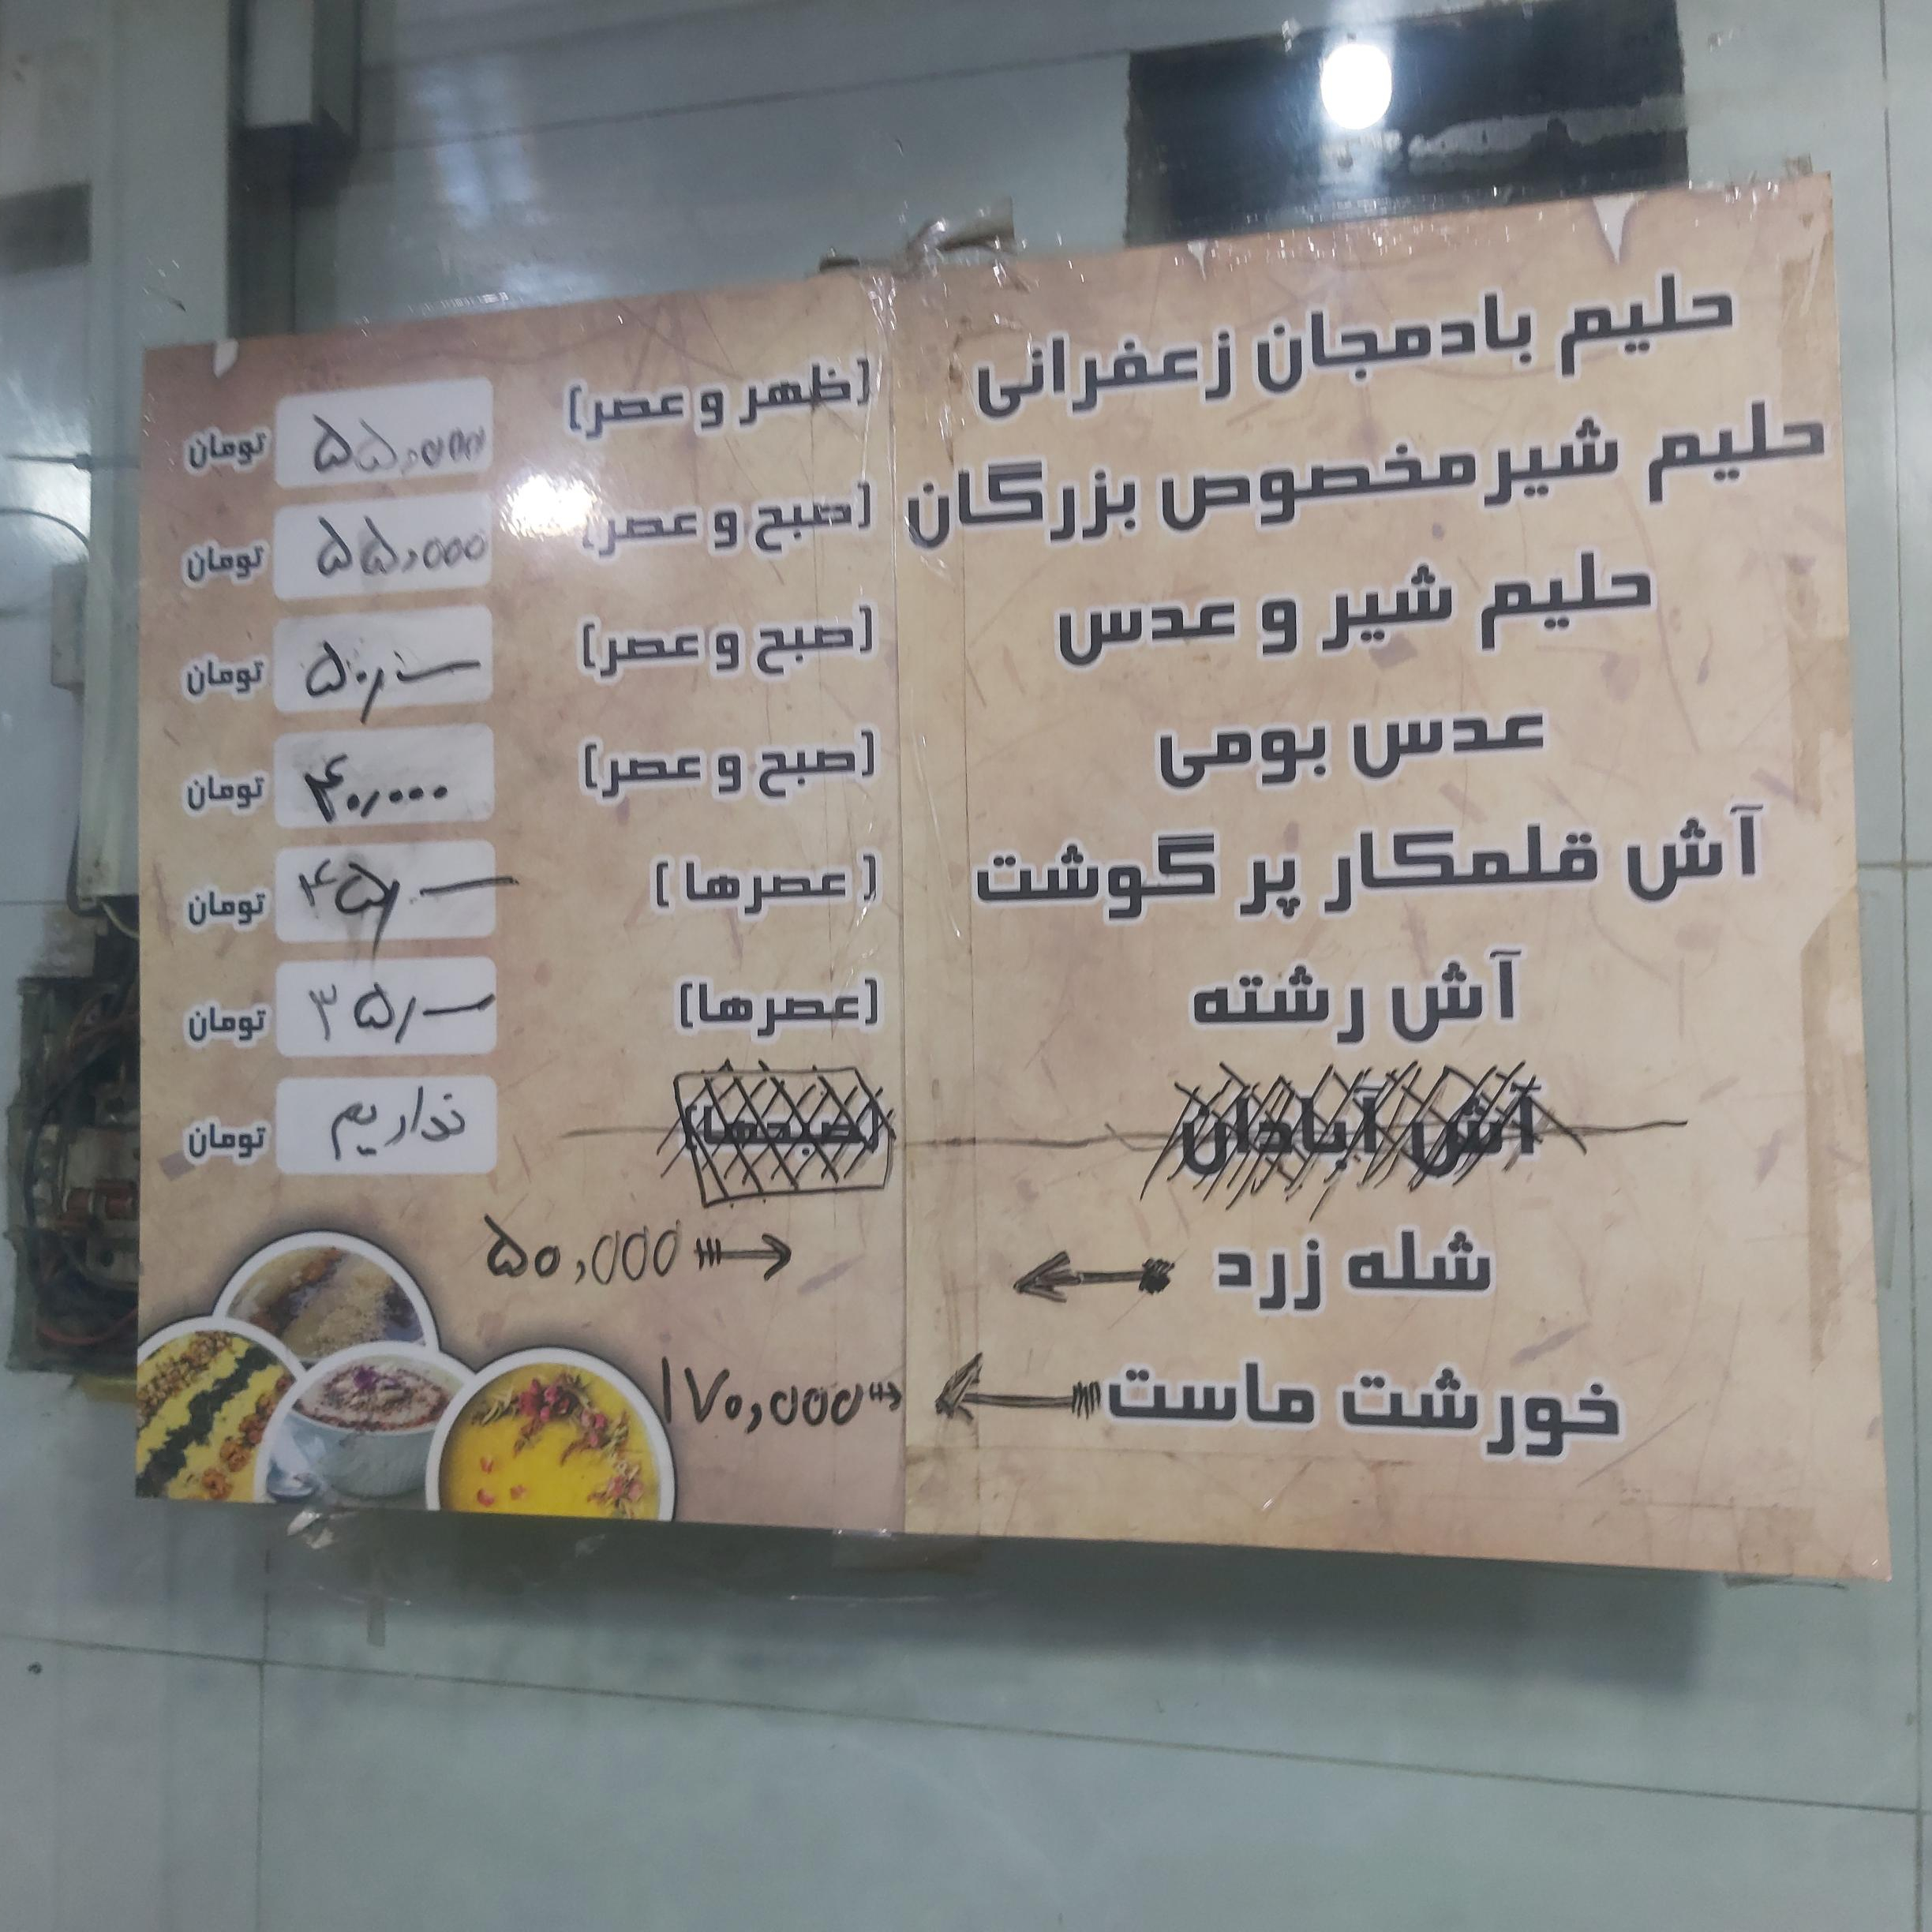 حلیم بادمجان زعفرانی (ظهر و عصر) ۵۵,۰۰۰ تومان
حلیم شیر مخصوص بزرگان (صبح و عصر) ۵۵,۰۰۰ تومان
حلیم شیر و عدس (صبح و عصر) ۵۰,۰۰۰ تومان
عدس بومی (صبح و عصر) ۴۰,۰۰۰ تومان
آش قلمکار پر گوشت (عصرها) ۴۵,۰۰۰ تومان
آش رشته (عصرها) ۳۵,۰۰۰ تومان
آش آبادان (صبحها) نداریم تومان
شله زرد ۵۰,۰۰۰
خورشت ماست ۱۷۰,۰۰۰